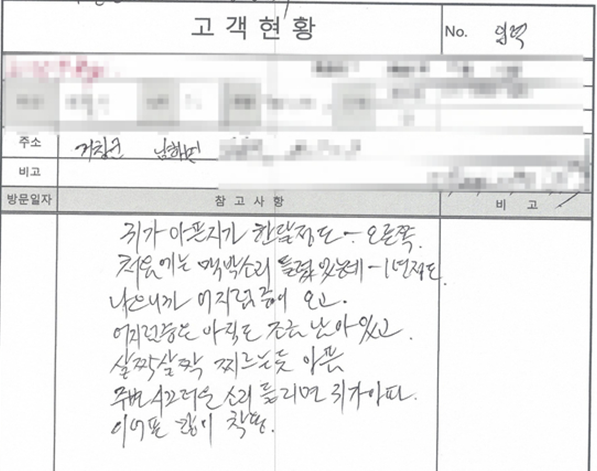 고객현황
No.
주소 거창군 남하면
비고
방문일자 참고사항 비고
귀가 아픈지가 한달정도 - 오른쪽.
처음에는 맥박소리 들렸었는데 - 1년정도.
나으니까 어지럼증이 오고.
어지럼증은 아직도 조금 남아있고.
살짝살짝 찌르는듯 아픔
주변 시끄러운 소리 들리면 귀가아파.
이어폰 많이 착용.